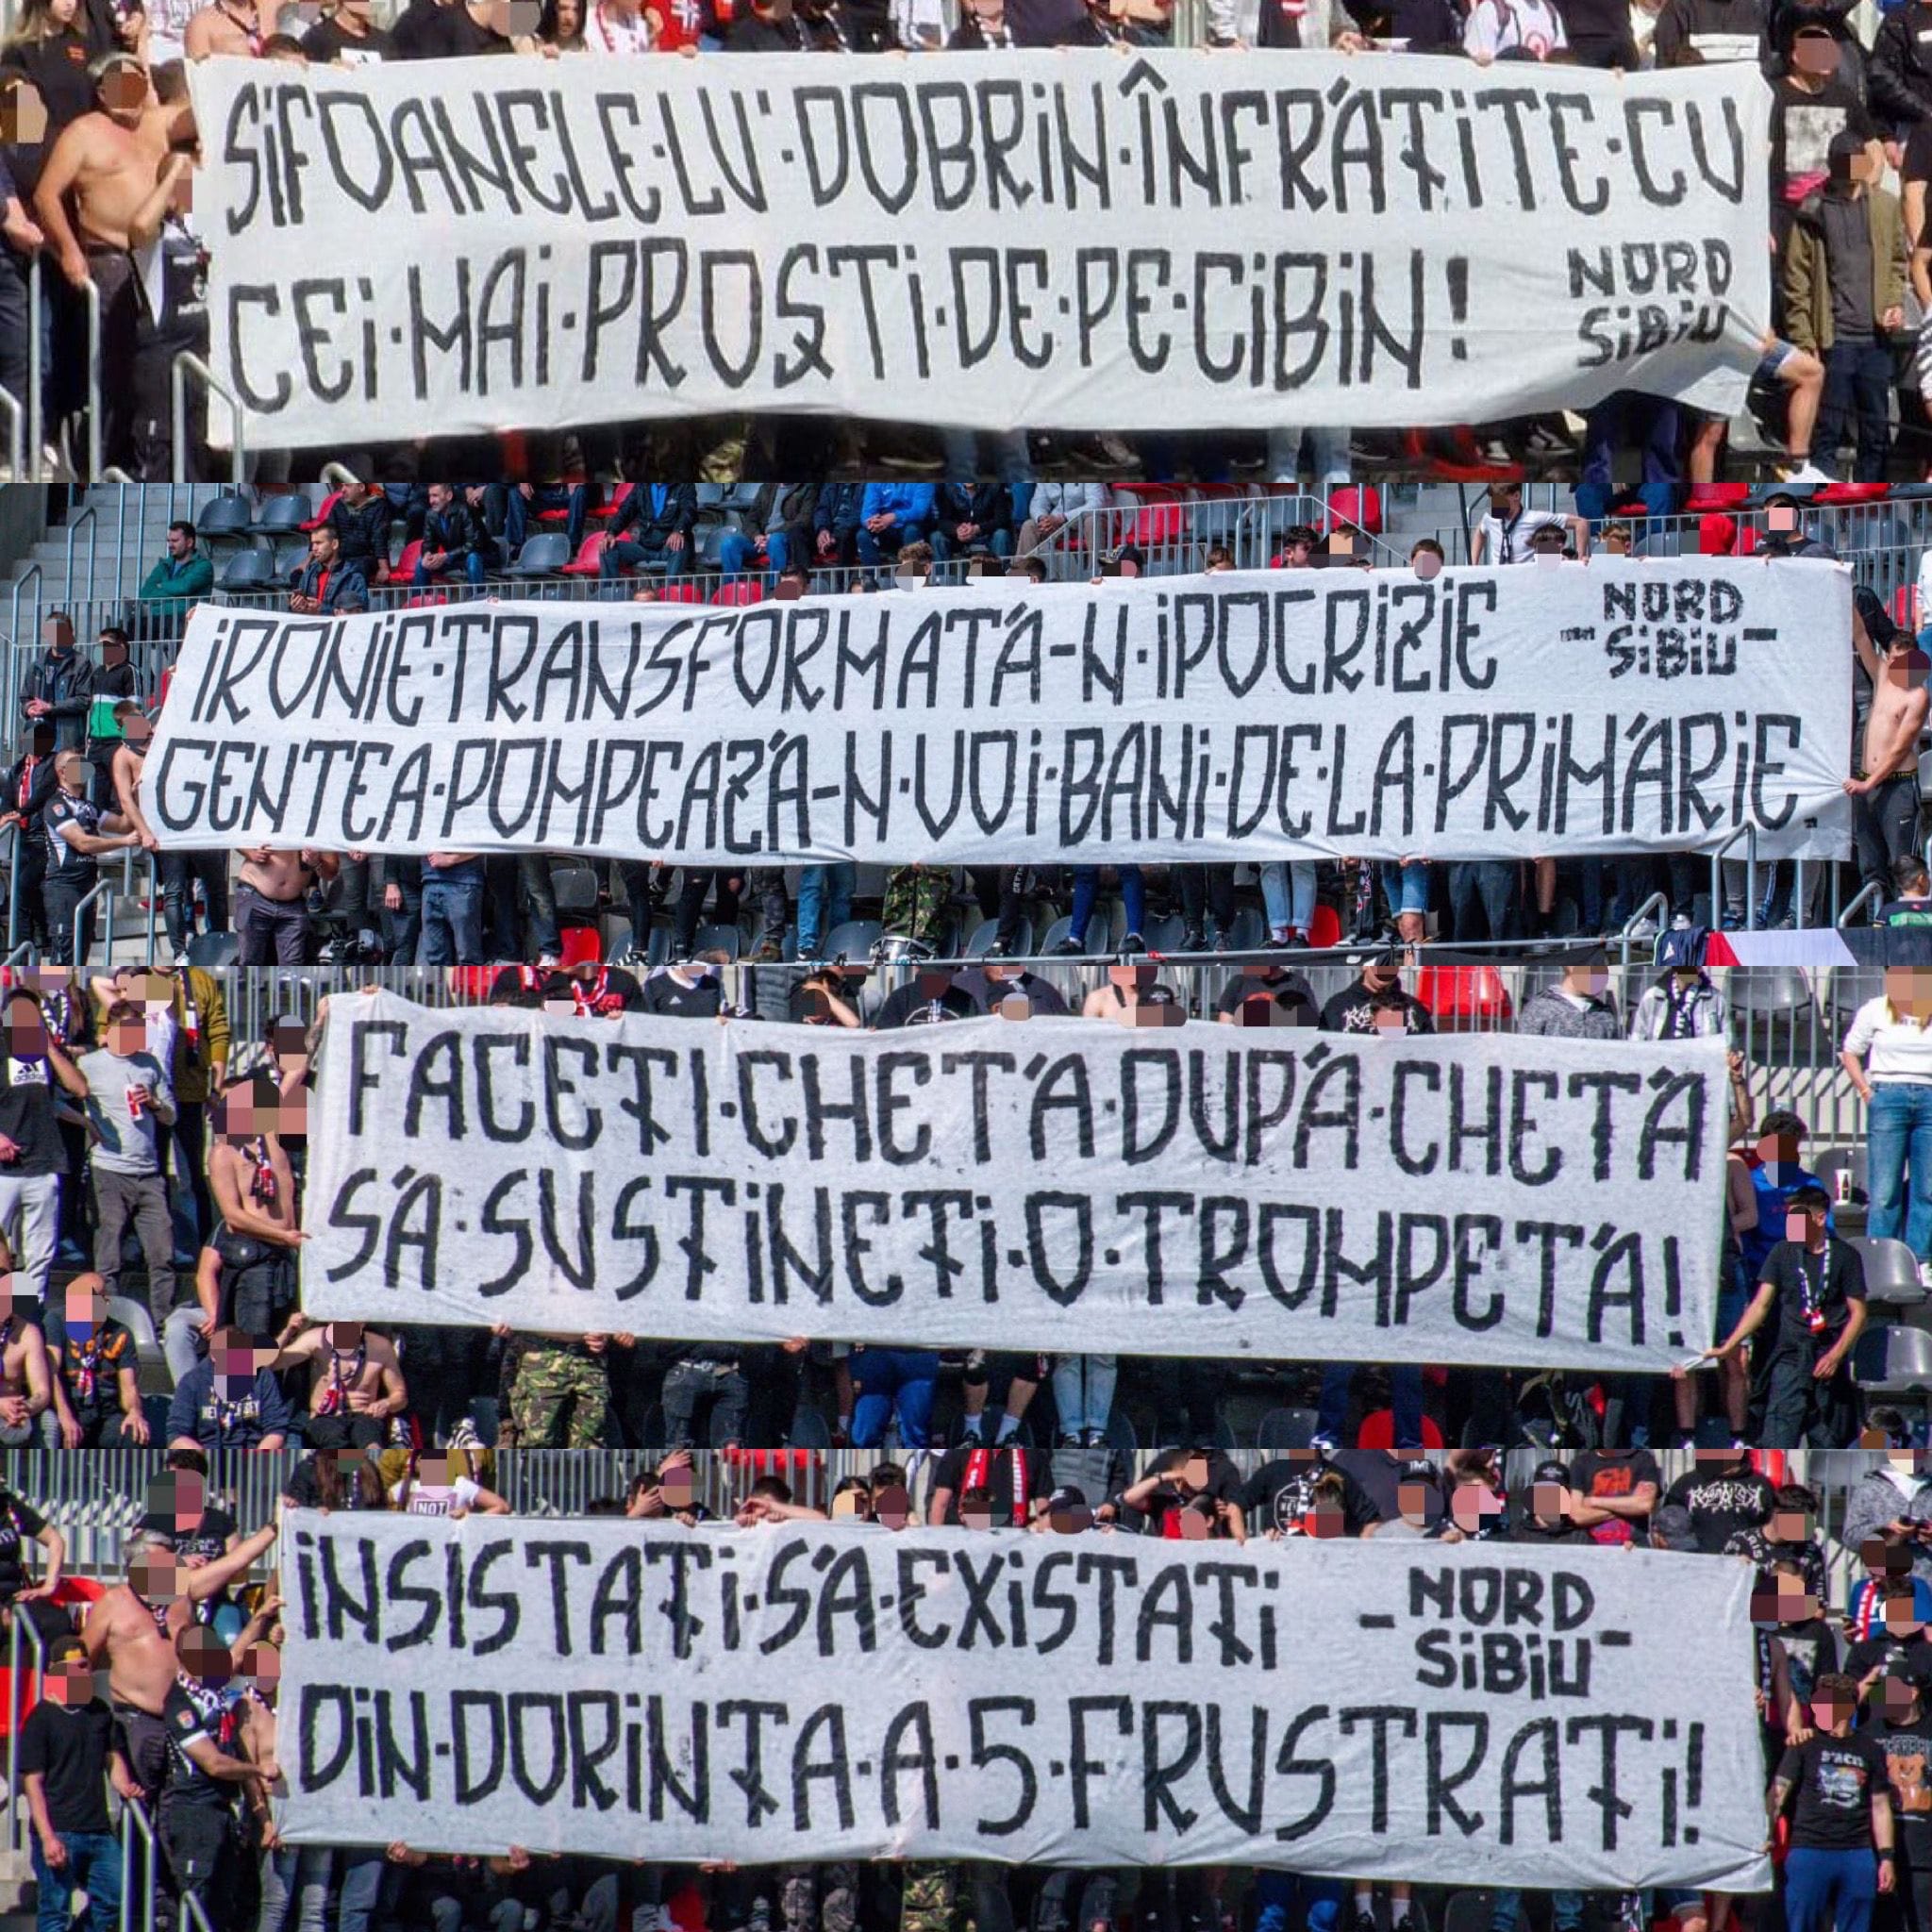 SIFOANELE·LU'·DOBRIN·ÎNFRĂȚITE·CU
CEI·MAI·PROȘTI·DE·PE·CIBIN!
NORD
SIBIU
IRONIE·TRANSFORMATĂ-N·IPOCRIZIE
GENTEA·POMPEAZĂ-N·VOI·BANI·DE·LA·PRIMĂRIE.
NORD
-SIBIU-
FACEȚI·CHETĂ·DUPĂ·CHETĂ
SĂ·SUSȚINEȚI·O·TROMPETĂ!
INSISTAȚI·SĂ·EXISTAȚI
DIN·DORINȚA·A·5·FRUSTRAȚI!
-NORD
SIBIU-
adidas
NOT